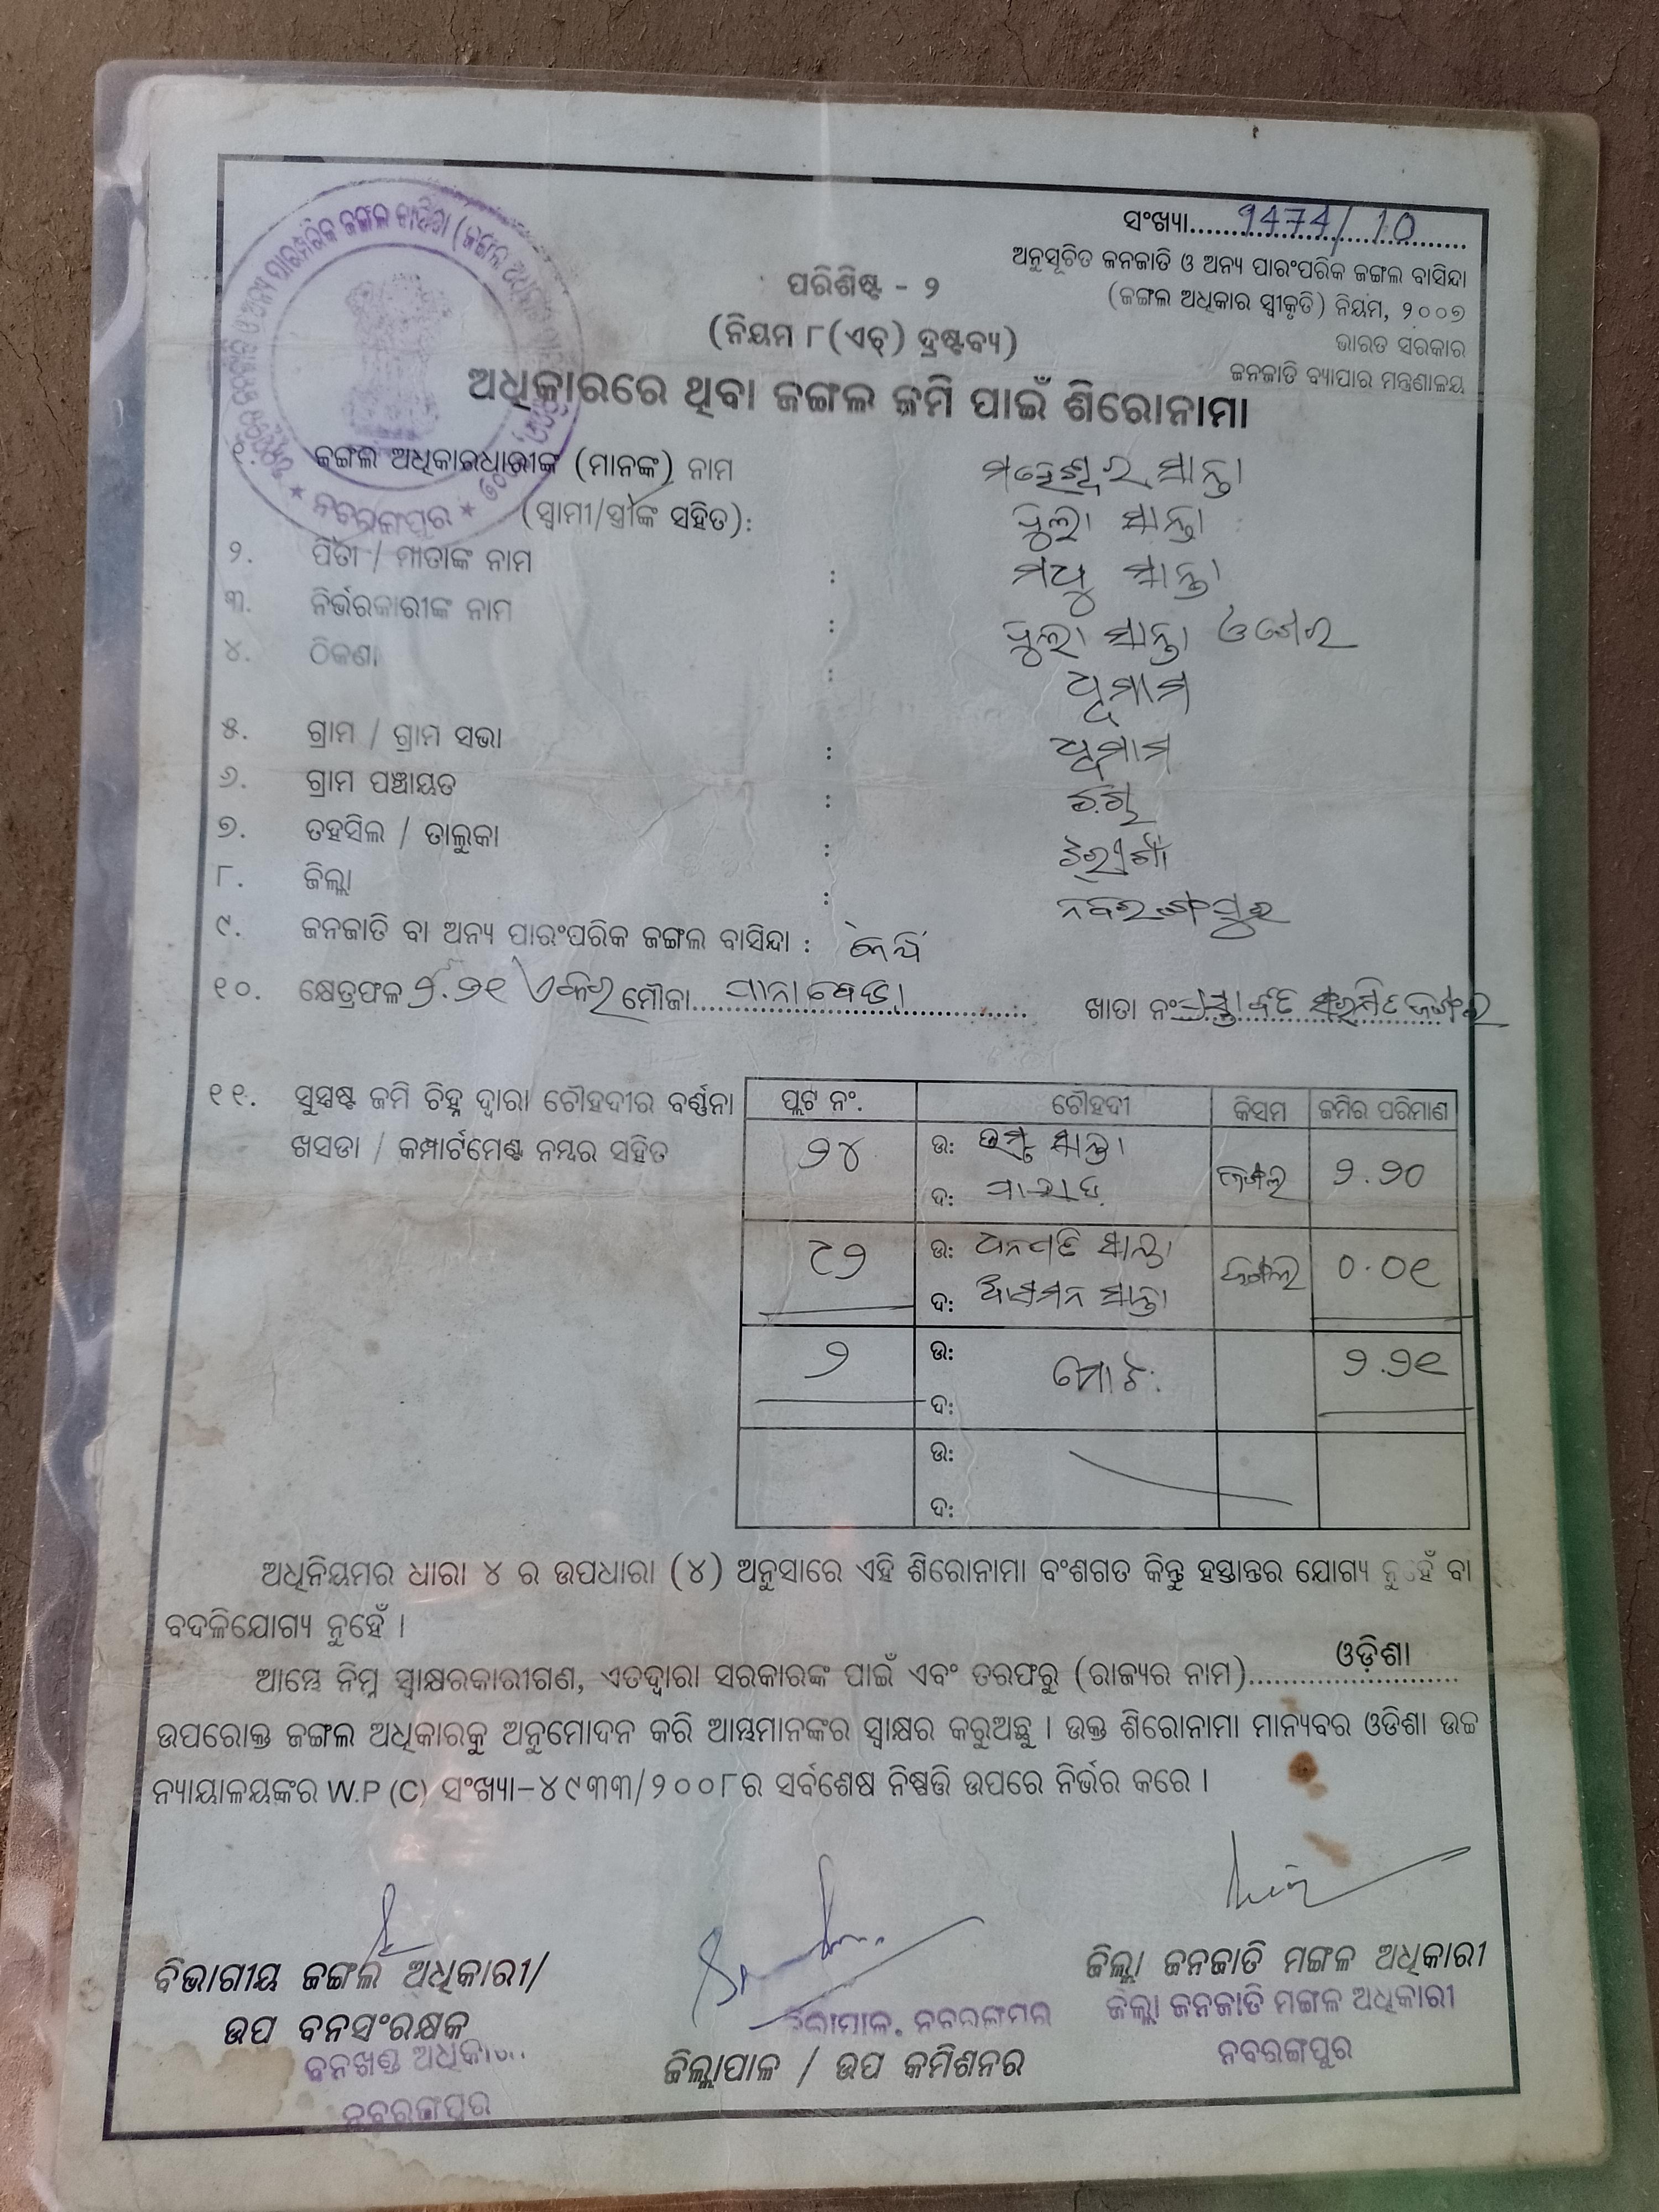 ସଂଖ୍ୟା 1474/10
ଅନୁସୂଚିତ ଜନଜାତି ଓ ଅନ୍ୟ ପାରଂପରିକ ଜଙ୍ଗଲ ବାସିନ୍ଦା
(ଜଙ୍ଗଲ ଅଧିକାର ସ୍ୱୀକୃତି) ନିୟମ, ୨୦୦୭
ଭାରତ ସରକାର
ଜନଜାତି ବ୍ୟାପାର ମନ୍ତ୍ରଣାଳୟ
ପରିଶିଷ୍ଟ - ୨
(ନିୟମ ୮(ଏଚ୍) ଦ୍ରଷ୍ଟବ୍ୟ)
ଅଧିକାରରେ ଥିବା ଜଙ୍ଗଲ ଜମି ପାଇଁ ଶିରୋନାମା
୧. ଜଙ୍ଗଲ ଅଧିକାରଧାରୀଙ୍କ (ମାନଙ୍କ) ନାମ ମହେଶ୍ୱର ସାନ୍ତା
(ସ୍ୱାମୀ/ସ୍ତ୍ରୀଙ୍କ ସହିତ): ଫୁଲା ସାନ୍ତା
୨. ପିତା / ମାତାଙ୍କ ନାମ : ମଧୁ ସାନ୍ତା
୩. ନିର୍ଭରକାରୀଙ୍କ ନାମ : ଫୁଲା ସାନ୍ତା
୪. ଠିକଣା :
୫. ଗ୍ରାମ / ଗ୍ରାମ ସଭା :
୬. ଗ୍ରାମ ପଞ୍ଚାୟତ :
୭. ତହସିଲ / ତାଲୁକା : ଝରିଗାଁ
୮. ଜିଲ୍ଲା : ନବରଙ୍ଗପୁର
୯. ଜନଜାତି ବା ଅନ୍ୟ ପାରଂପରିକ ଜଙ୍ଗଲ ବାସିନ୍ଦା :
୧୦. କ୍ଷେତ୍ରଫଳ ୨.୨୧ ଏକର ମୌଜା ଖାତା ନଂ
୧୧. ସୁସ୍ପଷ୍ଟ ଜମି ଚିହ୍ନ ଦ୍ୱାରା ଚୌହଦୀର ବର୍ଣ୍ଣନା
ଖସଡା / କମ୍ପାର୍ଟମେଣ୍ଟ ନମ୍ବର ସହିତ
ପ୍ଲଟ ନଂ. ଚୌହଦୀ କିସମ ଜମିର ପରିମାଣ
୨୪ ଉ: ସାନ୍ତା ଜଙ୍ଗଲ ୨.୨୦
ଦ: ପାହାଡ
୯୨ ଉ: ଧନପତି ସାନ୍ତା ଜଙ୍ଗଲ ୦.୦୧
ଦ: ଆସମନ ସାନ୍ତା
୨ ଉ: ମୋଟ: ୨.୨୧
ଦ:
ଉ:
ଦ:
ଅଧିନିୟମର ଧାରା ୪ ର ଉପଧାରା (୪) ଅନୁସାରେ ଏହି ଶିରୋନାମା ବଂଶଗତ କିନ୍ତୁ ହସ୍ତାନ୍ତର ଯୋଗ୍ୟ ନୁହେଁ ବା
ବଦଳିଯୋଗ୍ୟ ନୁହେଁ ।
ଆମ୍ଭେ ନିମ୍ନ ସ୍ୱାକ୍ଷରକାରୀଗଣ, ଏତଦ୍ୱାରା ସରକାରଙ୍କ ପାଇଁ ଏବଂ ତରଫରୁ (ରାଜ୍ୟର ନାମ) ଓଡ଼ିଶା
ଉପରୋକ୍ତ ଜଙ୍ଗଲ ଅଧିକାରକୁ ଅନୁମୋଦନ କରି ଆମ୍ଭମାନଙ୍କର ସ୍ୱାକ୍ଷର କରୁଅଛୁ । ଉକ୍ତ ଶିରୋନାମା ମାନ୍ୟବର ଓଡିଶା ଉଚ୍ଚ
ନ୍ୟାୟାଳୟଙ୍କର W.P (C) ସଂଖ୍ୟା–୪୯୩୩/୨୦୦୮ର ସର୍ବଶେଷ ନିଷ୍ପତ୍ତି ଉପରେ ନିର୍ଭର କରେ ।
ବିଭାଗୀୟ ଜଙ୍ଗଲ ଅଧିକାରୀ/
ଉପ ବନସଂରକ୍ଷକ
ବନଖଣ୍ଡ ଅଧିକାରୀ
ନବରଙ୍ଗପୁର
ଜିଲ୍ଲାପାଳ, ନବରଙ୍ଗପୁର
ଜିଲ୍ଲାପାଳ / ଉପ କମିଶନର
ଜିଲ୍ଲା ଜନଜାତି ମଙ୍ଗଳ ଅଧିକାରୀ
ଜିଲ୍ଲା ଜନଜାତି ମଙ୍ଗଳ ଅଧିକାରୀ
ନବରଙ୍ଗପୁର